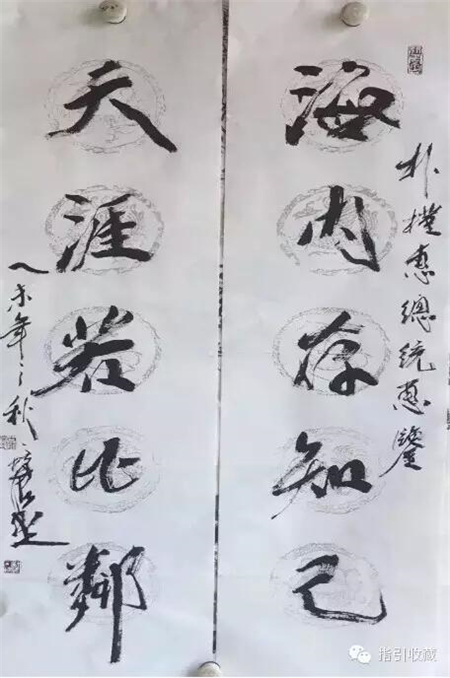 朴槿惠總統惠鑒
海内存知己
天涯若比鄰
乙未年之秋
指引收藏